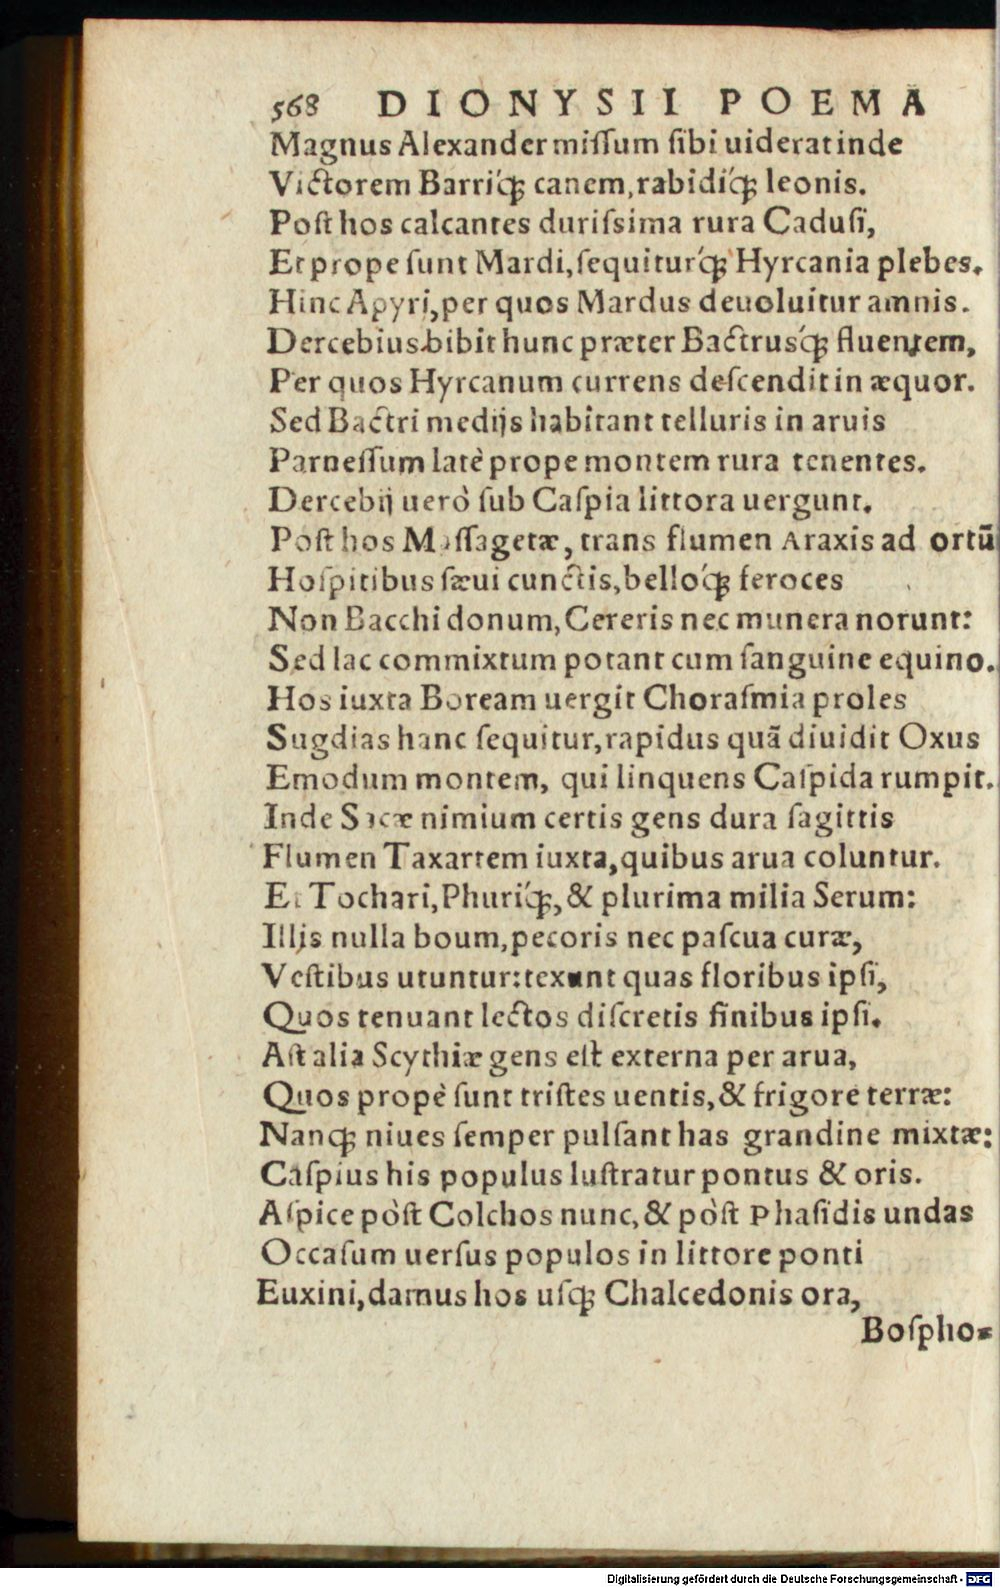 568 DIONYSII POEMA
Magnus Alexander miſſum ſibi uiderat inde
Victorem Barriq́; canem, rabidiq́; leonis.
Poſt hos calcantes duriſsima rura Caduſi,
Et prope ſunt Mardi, ſequiturq́; Hyrcania plebes.
Hinc Apyri, per quos Mardus deuoluitur amnis.
Dercebius bibit hunc præter Bactrusq́; fluentem,
Per quos Hyrcanum currens deſcendit in æquor.
Sed Bactri medijs habitant telluris in aruis
Parneſſum latè prope montem rura tenentes.
Dercebij uerò ſub Caſpia littora uergunt.
Poſt hos Maſſagetæ, trans flumen Araxis ad ortũ
Hoſpitibus ſæui cunctis, belloq́; feroces
Non Bacchi donum, Cereris nec munera norunt:
Sed lac commixtum potant cum ſanguine equino.
Hos iuxta Boream uergit Choraſmia proles
Sugdias hanc ſequitur, rapidus quã diuidit Oxus
Emodum montem, qui linquens Caſpida rumpit.
Inde Sacæ nimium certis gens dura ſagittis
Flumen Taxartem iuxta, quibus arua coluntur.
Et Tochari, Phuriq́;, & plurima milia Serum:
Illis nulla boum, pecoris nec paſcua curæ,
Veſtibus utuntur: texunt quas floribus ipſi,
Quos tenuant lectos diſcretis finibus ipſi.
Aſt alia Scythiæ gens eſt externa per arua,
Quos propè ſunt triſtes uentis, & frigore terræ:
Nanq; niues ſemper pulſant has grandine mixtæ:
Caſpius his populus luſtratur pontus & oris.
Aſpice pòſt Colchos nunc, & pòſt Phaſidis undas
Occaſum uerſus populos in littore ponti
Euxini, damus hos uſq; Chalcedonis ora,
Boſpho⸗
Digitalisierung gefördert durch die Deutsche Forschungsgemeinschaft - DFG